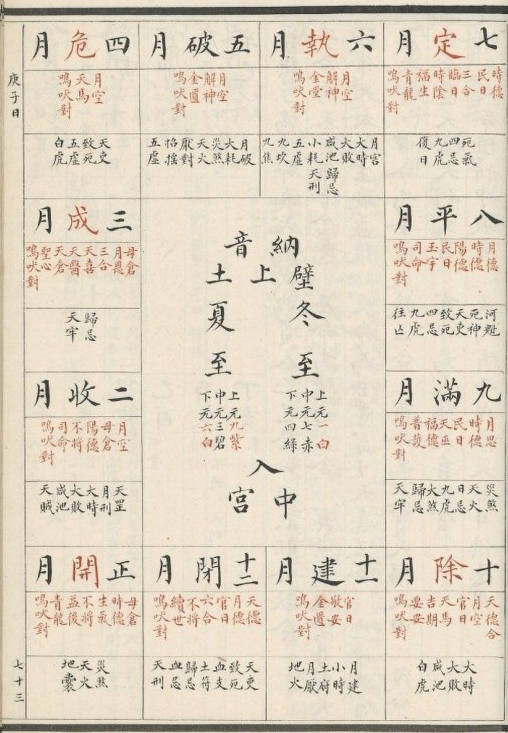 庚子日
七定月
時德
民日
三合
臨日
時陰
福生
青龍
鳴吠對
死氣
四忌
九虎
復日
六執月
月空
解神
金堂
鳴吠對
月害
大時
大敗
咸池歸忌
小耗天刑
五虛
九坎
九焦
五破月
月空
解神
金匱
鳴吠對
月破
大耗
災煞
天火
厭對
招搖
五虛
四危月
月空
天馬
鳴吠對
天吏
致死
五虛
白虎
八平月
月德
時德
陽德
民日
玉宇
司命
鳴吠對
河魁
死神
天吏
致死
四忌
九虎
往亡
納音
壁上土
冬至
上元一白
中元七赤
下元四綠
夏至
上元九紫
中元三碧
下元六白
入中宮
三成月
母倉
月恩
三合
天喜
天醫
天倉
聖心
鳴吠對
歸忌
天牢
九滿月
月恩
時德
民日
天巫
福德
普護
鳴吠對
災煞
天火
日忌
九虎
大煞
歸忌
天牢
二收月
月空
母倉
陽德
不將
司命
鳴吠對
天罡
月刑
大時
大敗
咸池
天賊
十除月
天德合
月空
官日
天馬
吉期
要安
鳴吠對
大時
大敗
咸池
白虎
十一建月
官日
敬安
金匱
鳴吠對
月建
小時
土府
月厭
地火
十二閉月
天德
月德
官日
六合
不將
續世
鳴吠對
天吏
致死
血支
土符
歸忌
血忌
天刑
正開月
母倉
時德
生氣
不將
益後
青龍
鳴吠對
災煞
天火
地囊
七十三